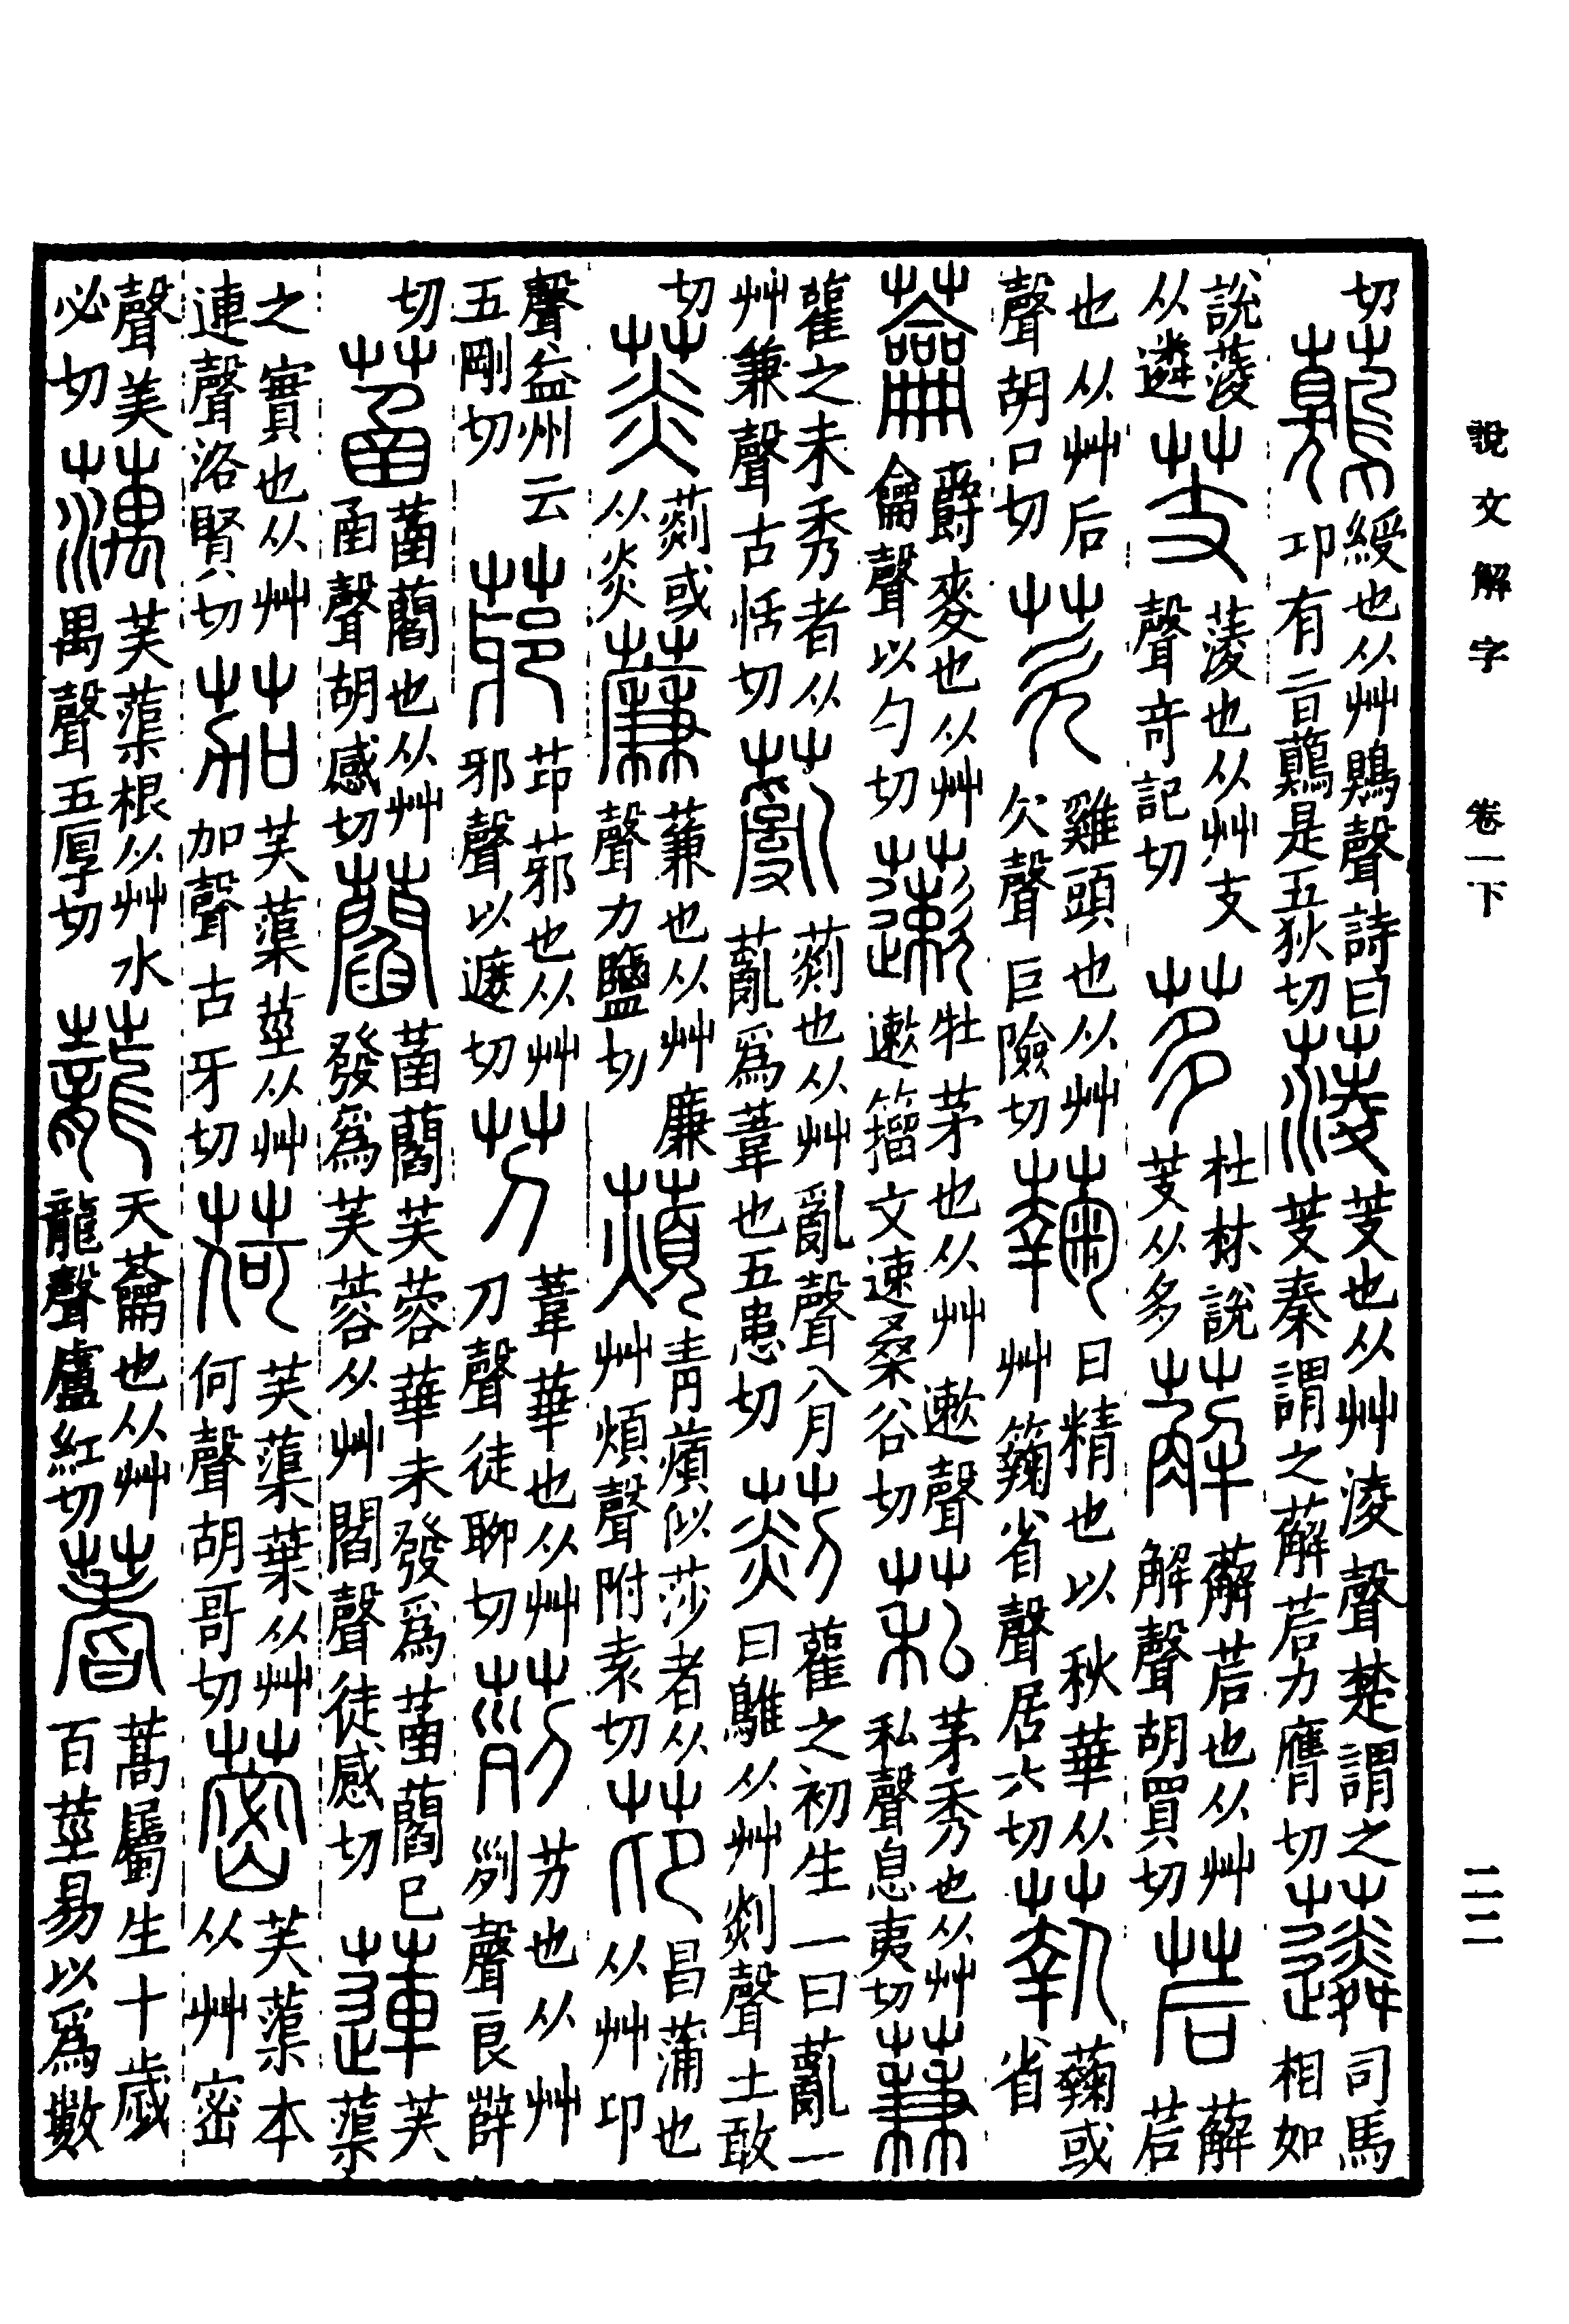 說文解字 卷一下 二二
切 虉 綬也从艸鶪聲詩曰邛有旨虉是五狄切 蓤 芰也从艸淩聲楚謂之芰秦謂之薢茩力膺切 𧄍 司馬相如
說蓤从遴 芰 蓤也从艸支聲奇記切 茤 杜林說芰从多 薢 薢茩也从艸解聲胡買切 茩 薢茩
也从艸后聲胡口切 芡 雞頭也从艸欠聲巨險切 蘜 日精也以秋華从艸䕮省聲居六切 𧄑 蘜或省
蘥 爵麥也从艸龠聲以勺切 藗 牡茅也从艸遬聲遬籒文速桑谷切 𦮺 茅秀也从艸私聲息夷切 蒹
雚之未秀者从艸兼聲古恬切 薍 䓆也从艸亂聲八月薍爲葦也五患切 䓆 雚之初生一曰薍一曰鵻从艸剡聲土敢
切 菼 䓆或从炎 薕 蒹也从艸廉聲力鹽切 薠 青薠似莎者从艸煩聲附袁切 茚 昌蒲也从艸卬
聲益州云五剛切 䓉 茚䓉也从艸邪聲以遮切 芀 葦華也从艸刀聲徒聊切 茢 芀也从艸列聲良薛
切 菡 菡藺也从艸圅聲胡感切 藺 菡藺芙蓉華未發爲菡藺已發爲芙蓉从艸閻聲徒感切 蓮 芙蕖
之實也从艸連聲洛賢切 茄 芙蕖莖从艸加聲古牙切 荷 芙蕖葉从艸何聲胡哥切 蔤 芙蕖本从艸密
聲美必切 蕅 芙蕖根从艸水禺聲五厚切 蘢 天蘥也从艸龍聲盧紅切 蓍 蒿屬生十歲百莖易以爲數